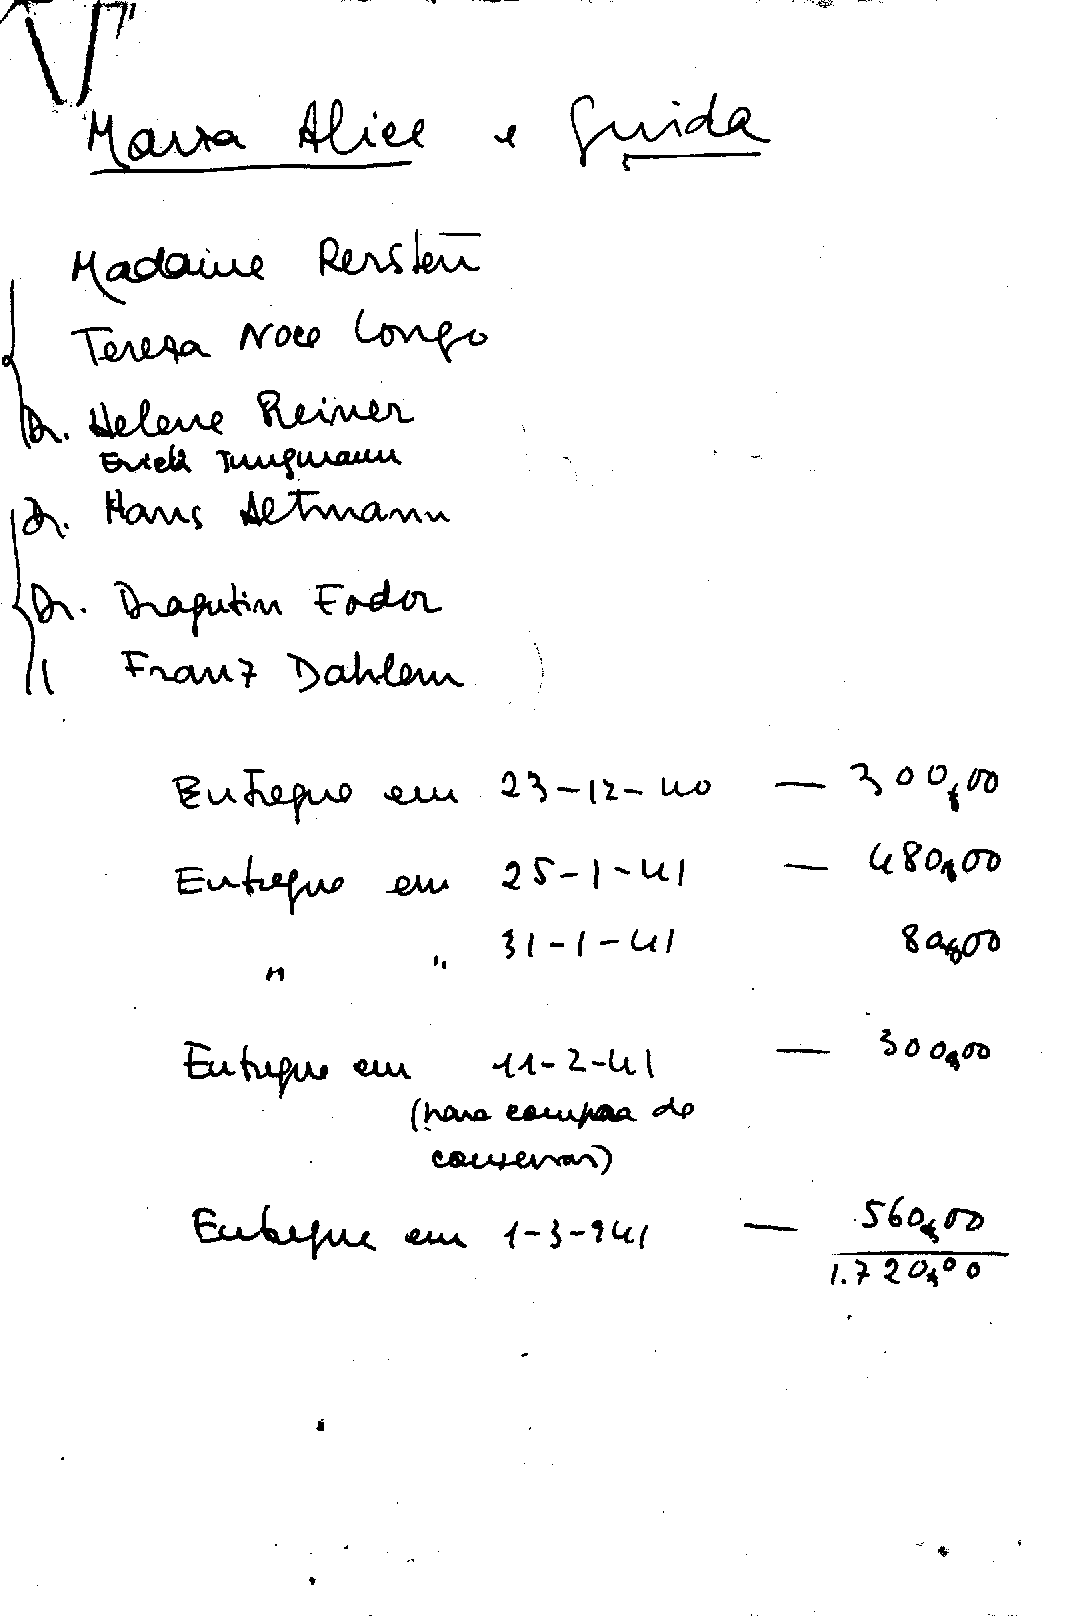 Maria Alice e Guida
Madame
Teresa Noce Longo
Dr. Helene Reiner
Erich Jungmann
Dr. Hans Altmann
Dr. Dragutin Fodor
" Franz Dahlem
Entregue em 23-12-40 — 300,00
Entregue em 25-1-41 — 480,00
" " 31-1-41 80,00
Entregue em 11-2-41 — 300,00
(para compra de
conservas)
Entregue em 1-3-941 — 560,00
1.720,00